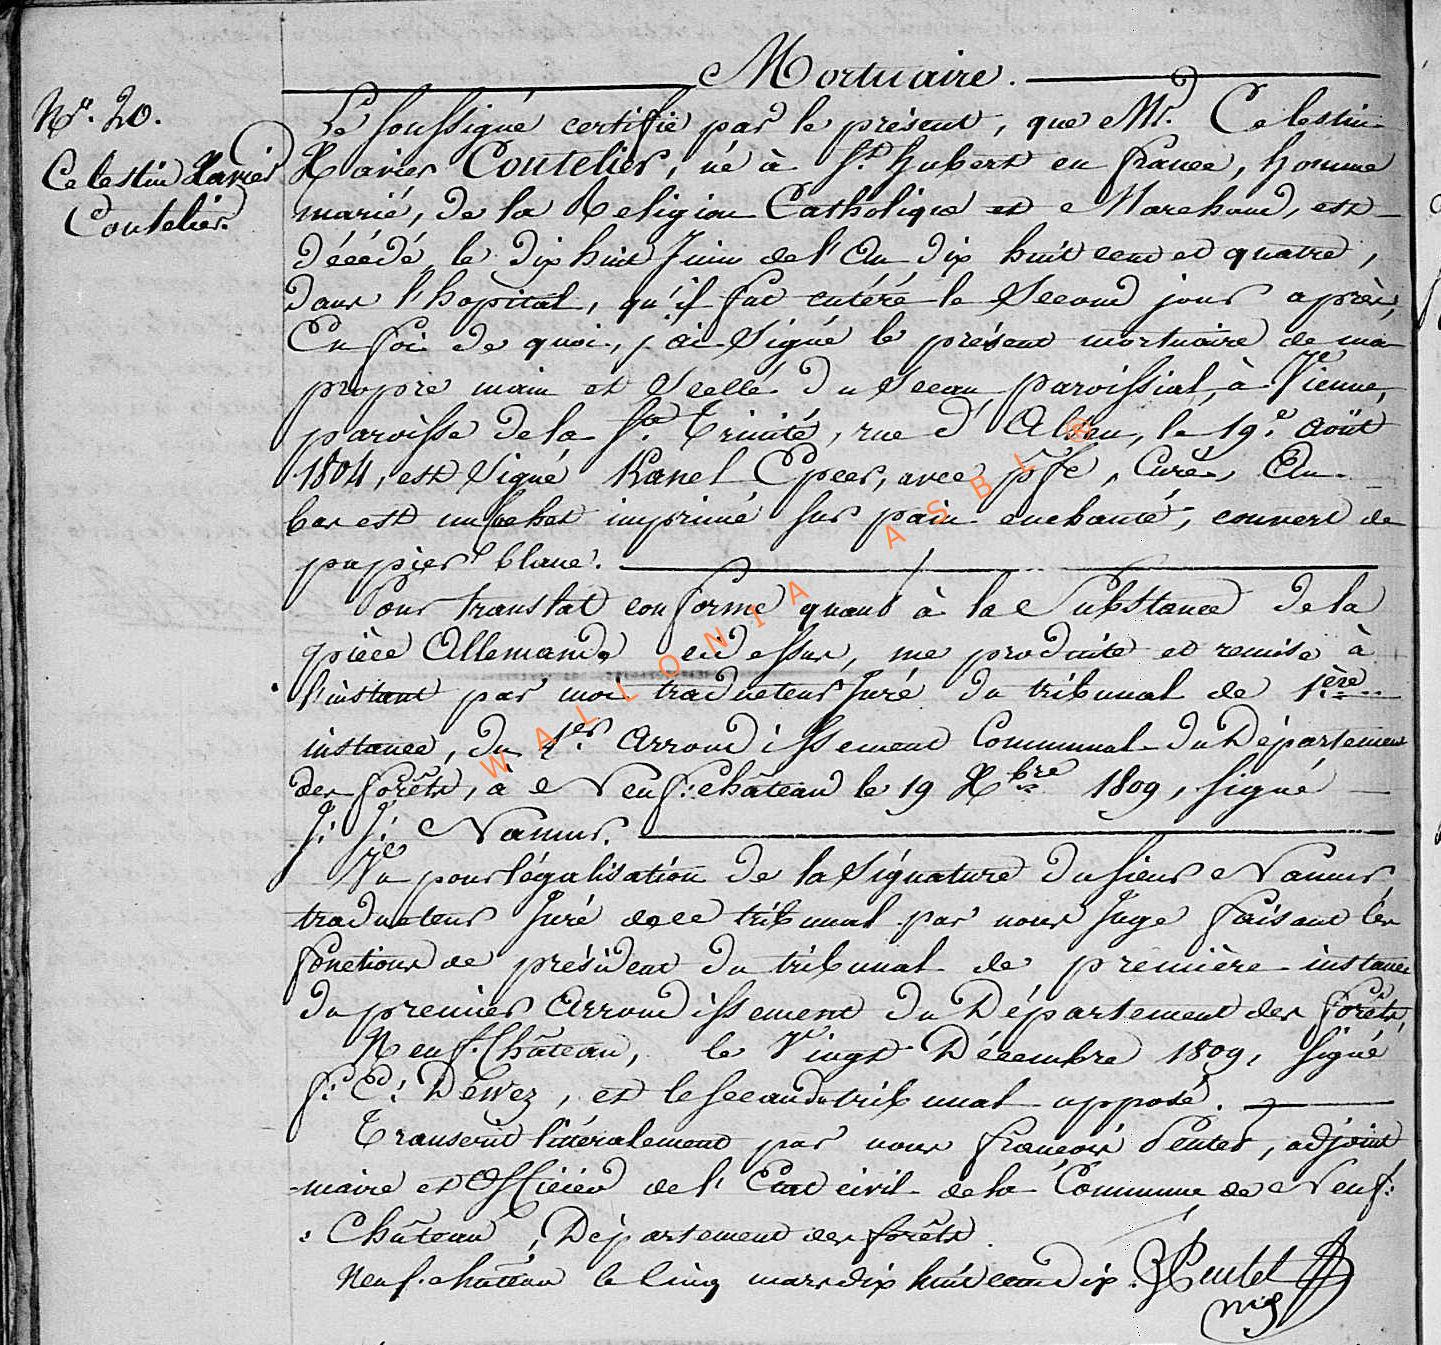 Mortuaire.
Nr. 20.
Celestin Xavier
Coutelier.
Le soussigné certifie par le présent, que Mr. Celestin
Xavier Coutelier, né à St. hubert en france, homme
marié, de la Religion Catholique et Marchand, est
décédé le dix huit Juin de l'An dix huit cent et quatre,
dans l'hôpital, qu'il fut entéré le second jour après,
En foi de quoi, j'ai signé le présent mortuaire de ma
propre main et scellé du sceau paroissial, à Vienne,
paroisse de la Ste. Trinité, rue d' , le 19e. Août
1804, est signé Karel , avec , Curé, Au
bas est un cachet imprimé sur pain enchanté, couvert de
papier blanc.
Pour translat conforme quant à la Substance de la
pièce Allemande cidessus, me produite et remise à
l'instant par moi traducteur Juré du tribunal de 1ère
instance, du 1er. Arrondissement Communal du Département
des forêts, à Neuf:château le 19 Xbre 1809, signé
J: J: Namur.
Vu pour légalisation de la Signature du sieur Namur
traducteur Juré de ce tribunal par nous Juge faisant les
fonctions de président du tribunal de première instance
du premier Arrondissement du Département des forêts,
Neuf.Château, le Vingt Décembre 1809, signé
f: C: Dewez, et le sceau du tribunal apposé.
Transcrit littéralement par nous françois Pentet, adjoint
maire et Officier de l'Etat civil de la Commune de Neuf:
:Château, Département des forêts.
Neuf.château le cinq mars dix huit cent dix. Pentet
WALLONIA ASBL ©